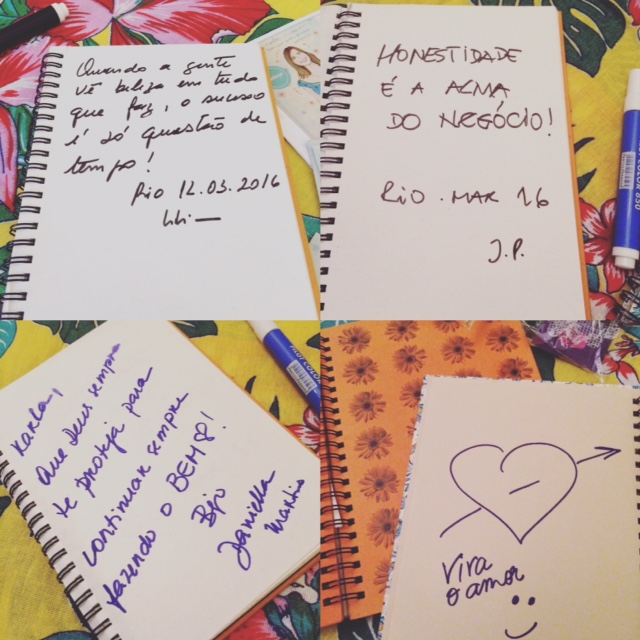 Quando a gente
vê beleza em tudo
que faz, o sucesso
é só questão de
tempo!
Rio 12.03.2016
HONESTIDADE
É A ALMA
DO NEGÓCIO!
RIO. MAR 16
J.P.
Karla,
Que Deus sempre
te proteja para
continuar sempre
fazendo o BEM!
Bjo
Daniella
Martins
Vira
o amor